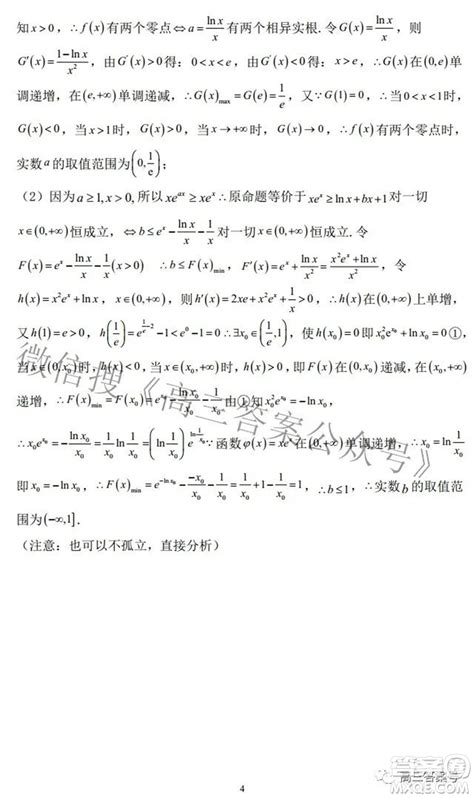 知 x>0，∴ f(x) 有两个零点 ⇔ a = lnx/x 有两个相异实根. 令 G(x) = lnx/x，则
G′(x) = (1−lnx)/x²，由 G′(x)>0 得：0<x<e，由 G′(x)<0 得：x>e，∴ G(x) 在 (0,e) 单
调递增，在 (e,+∞) 单调递减，∴ G(x)max = G(e) = 1/e，又∵ G(1)=0，∴ 当 0<x<1 时，
G(x)<0，当 x>1 时，G(x)>0，当 x→+∞ 时，G(x)→0，∴ f(x) 有两个零点时，
实数 a 的取值范围为 (0, 1/e)；
（2）因为 a≥1, x>0, 所以 xe^(ax) ≥ xe^x ∴ 原命题等价于 xe^x ≥ lnx+bx+1 对一切
x∈(0,+∞) 恒成立，⇔ b ≤ e^x − lnx/x − 1/x 对一切 x∈(0,+∞) 恒成立. 令
F(x) = e^x − lnx/x − 1/x (x>0) ∴ b ≤ F(x)min，F′(x) = e^x + lnx/x² = (x²e^x+lnx)/x²，令
h(x) = x²e^x + lnx，x∈(0,+∞)，则 h′(x) = 2xe^x + x²e^x + 1/x > 0 ∴ h(x) 在 (0,+∞) 上单增，
又 h(1)=e>0，h(1/e) = e^(1/e−2) −1 < e^0 −1 = 0 ∴ ∃x₀∈(1/e,1)，使 h(x₀)=0 即 x₀²e^(x₀)+lnx₀=0①，
当 x∈(0,x₀) 时，h(x)<0，当 x∈(x₀,+∞) 时，h(x)>0，即 F(x) 在 (0,x₀) 递减，在 (x₀,+∞)
递增，∴ F(x)min = F(x₀) = e^(x₀) − lnx₀/x₀ − 1/x₀ 由①知 x₀²e^(x₀) = −lnx₀，
∴ x₀e^(x₀) = −lnx₀/x₀ = (1/x₀)ln(1/x₀) = (ln(1/x₀))e^(ln(1/x₀)) ∵ 函数 φ(x)=xe^x 在 (0,+∞) 单调递增，∴ x₀ = ln(1/x₀)
即 x₀ = −lnx₀，∴ F(x)min = e^(−lnx₀) − (−x₀)/x₀ − 1/x₀ = 1/x₀ + 1 − 1/x₀ = 1，∴ b≤1，∴ 实数 b 的取值范
围为 (−∞,1].
（注意：也可以不孤立，直接分析）
微信搜《高三答案公众号》
高三答案号
MXQE.COM
4